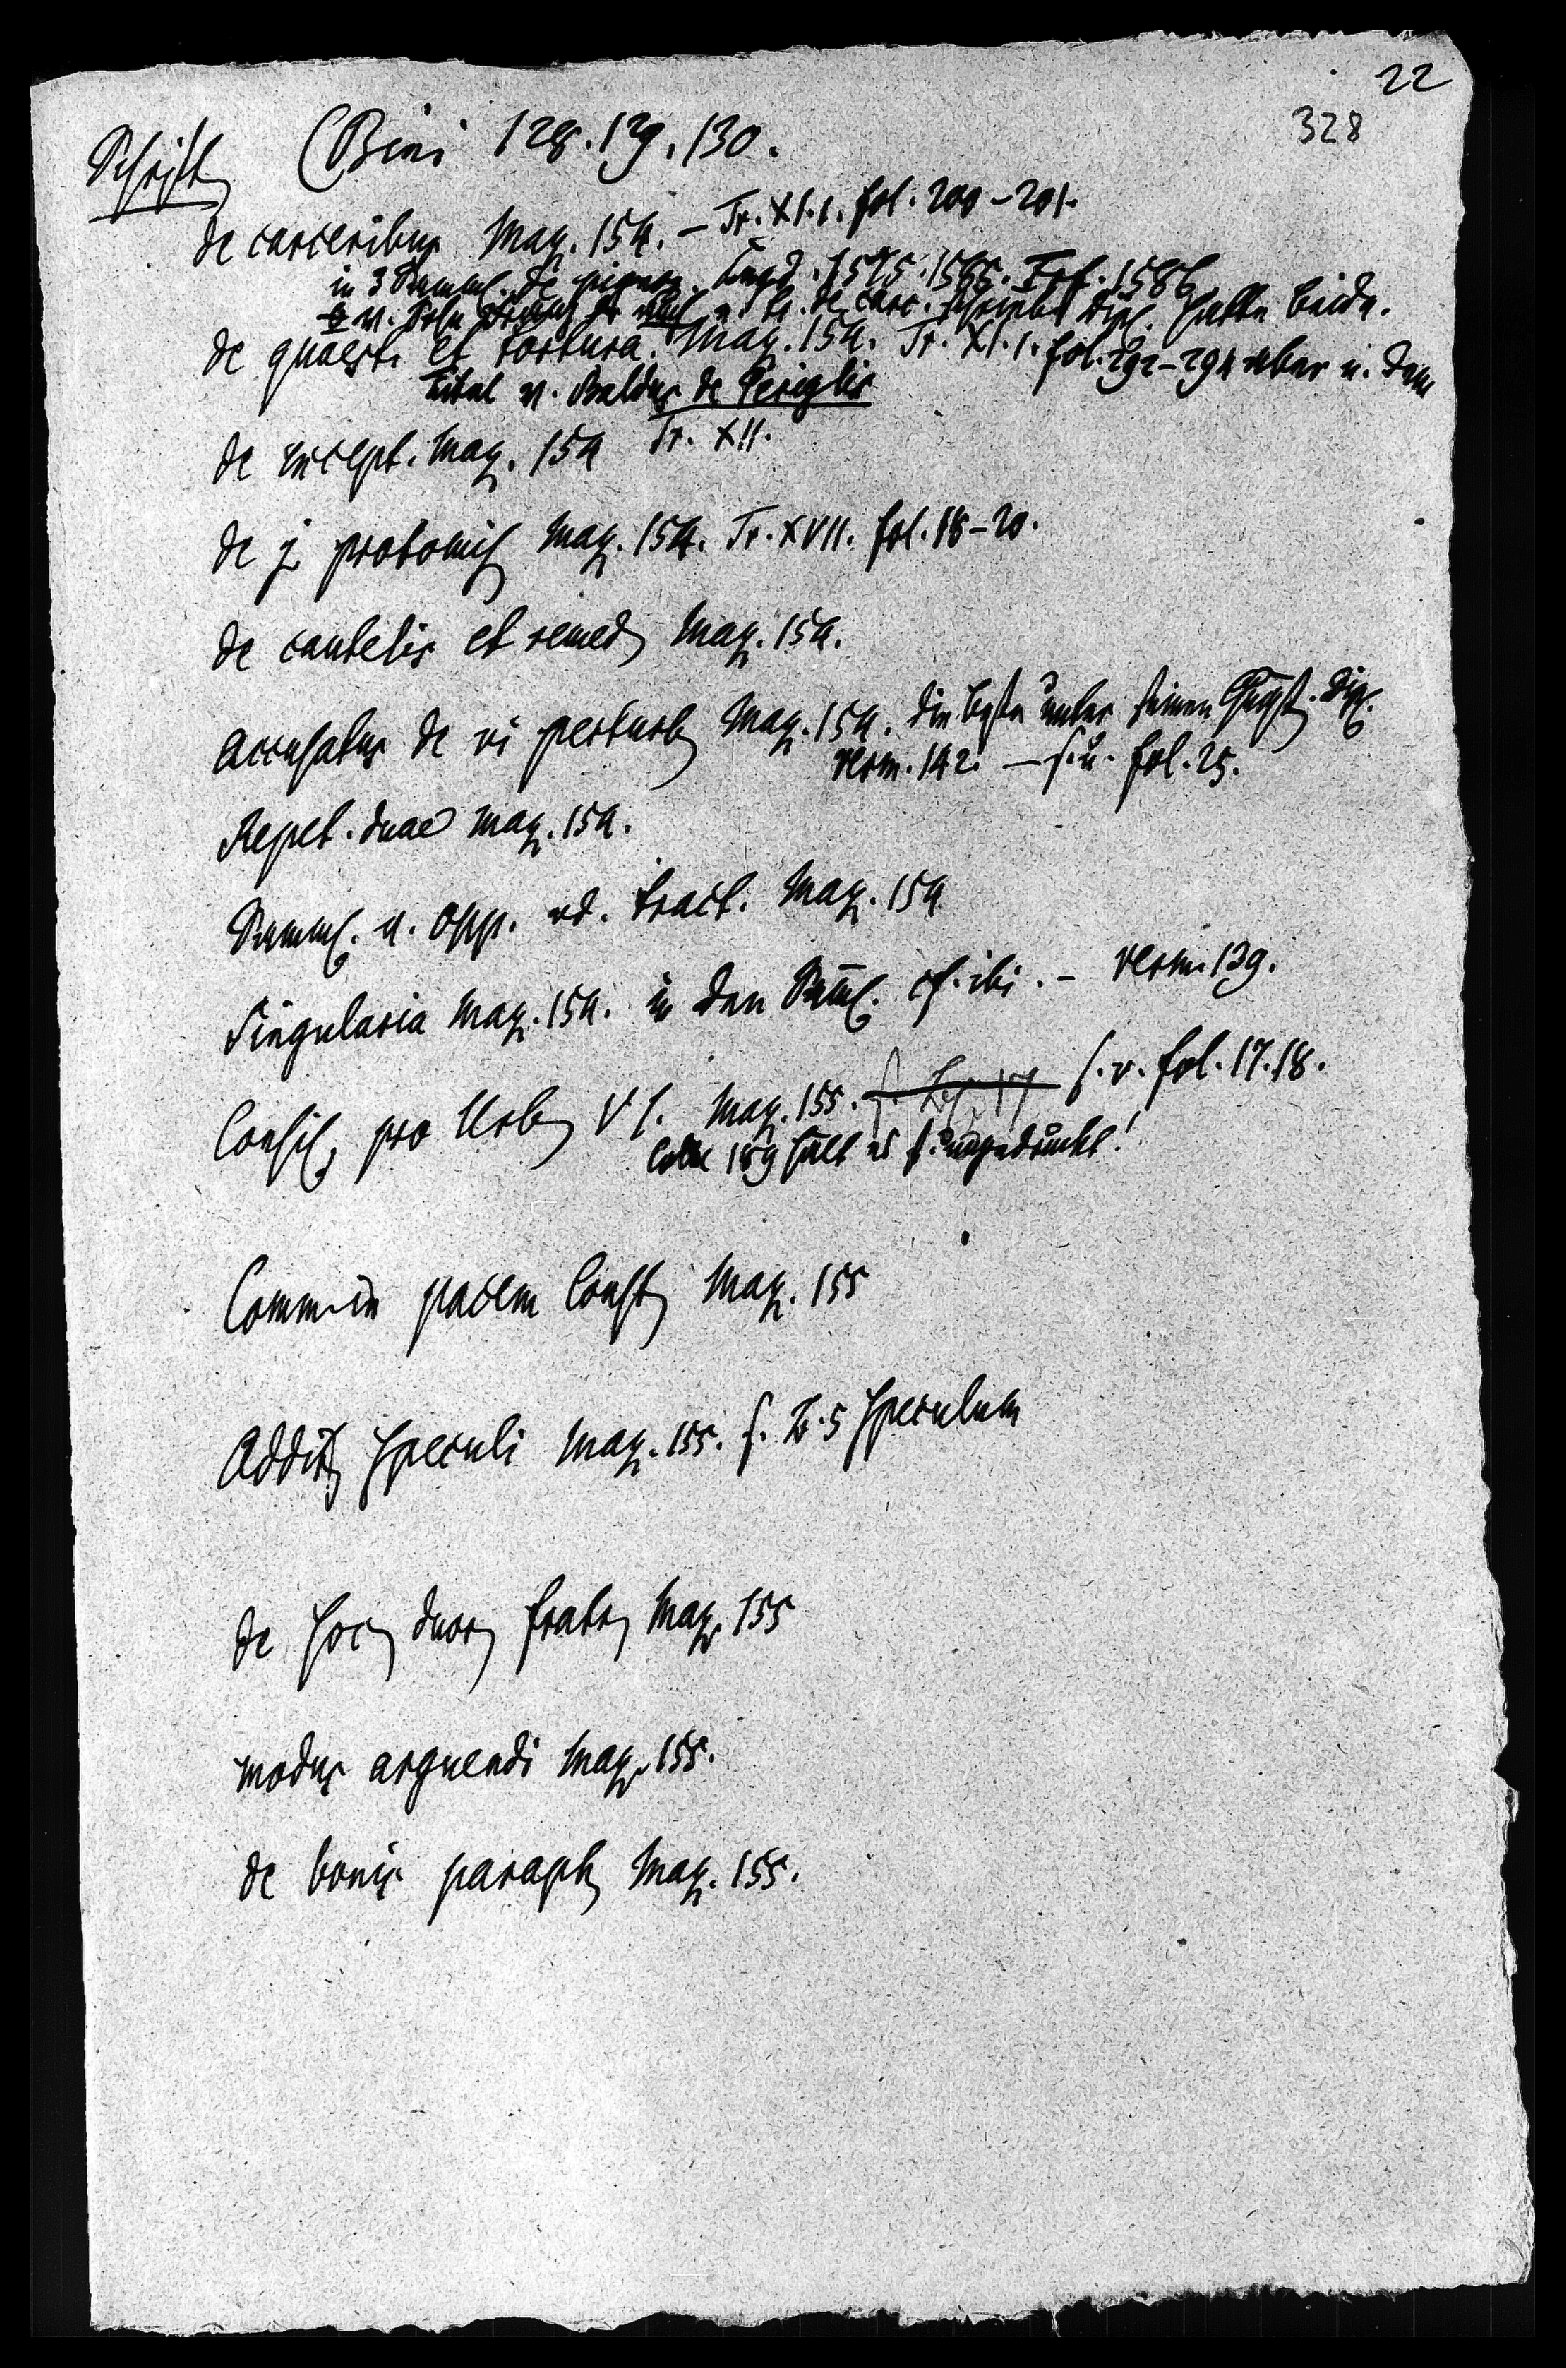 22
328
Schrift (Bini 128.129.130.
de carceribus Maz. 154. – Tr. XI.1. fol. 200–201.
in 3 Samml. de pignor. Lugd. 1575. 1585. Frf. 1586.
tr. de carc. hatte beide.
de quaest. et tortura. Maz. 154. Tr. XI.1. fol. 292–294 aber u. dem
Titel v. Baldus de Periglis
de except. Maz. 154 Tr. XII.
de j. protomis Maz. 154. Tr. XVII. fol. 18–20.
de cautelis et remed Maz. 154.
Accusatus de vi perturb Maz. 154. die beste unter seinen Quaest. Diz.
verm. 142. – s. u. fol. 25.
Repet. duae Maz. 154.
Samml. v. Opp. od. tract. Maz. 154
Singularia Maz. 154. in den Samml. cf. ibi. – verm. 139.
Consil. pro Urb VI. Maz. 155. s. v. fol. 17.18.
Colle 189 hält es f. ungedruckt!
Comm. in pacem Const Maz. 155
Addit Speculi Maz. 155. s. Z. 5 Speculum
de soc duor fratr Maz. 155
modus arguendi Maz. 155.
de bonis paraph Maz. 155.